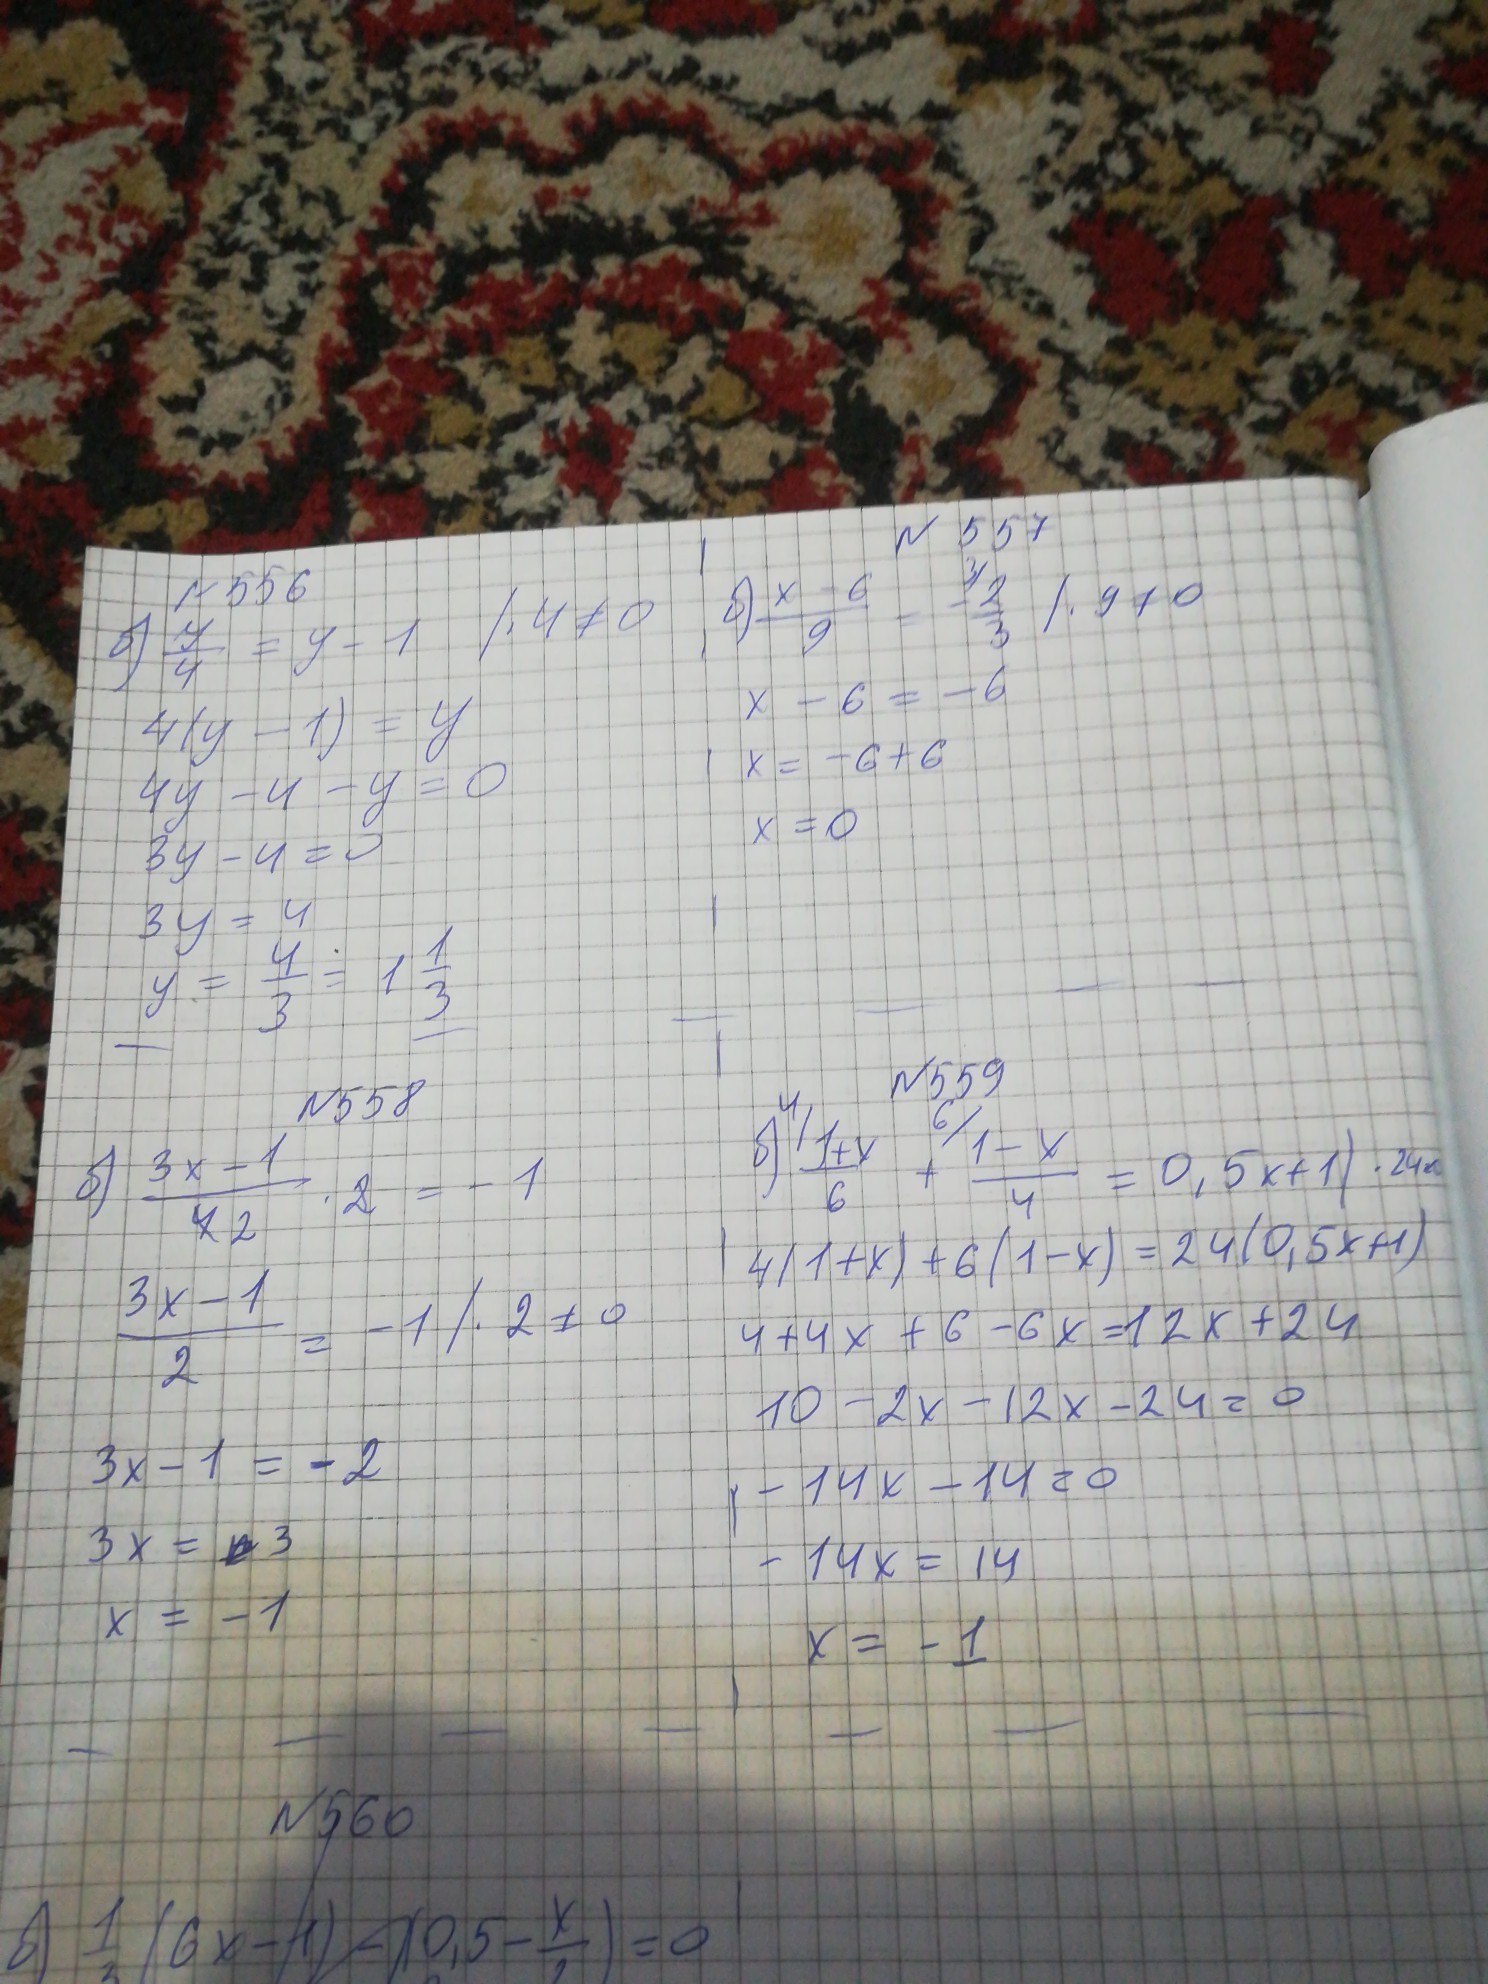 N 556
б) y/4 = y - 1 /· 4 ≠ 0
4(y - 1) = y
4y - 4 - y = 0
3y - 4 = 0
3y = 4
y = 4/3 = 1 1/3
N 557
б) x - 6 / 9 = 3/ -2/3 /· 9 ≠ 0
x - 6 = -6
x = -6+6
x = 0
N558
б) 3x - 1 / 42 · 2 = -1
3x - 1 / 2 = -1 /· 2 ≠ 0
3x - 1 = -2
3x = -3
x = -1
N559
б) 4/ 1+x / 6 + 6/ 1-x / 4 = 0,5x+1) · 24
4(1+x) + 6(1-x) = 24(0,5x+1)
4+4x + 6 - 6x = 12x + 24
10 - 2x - 12x - 24 = 0
- 14x - 14 = 0
- 14x = 14
x = -1
N560
б) 1/3 (6x - 1) - (0,5 - x/2) = 0